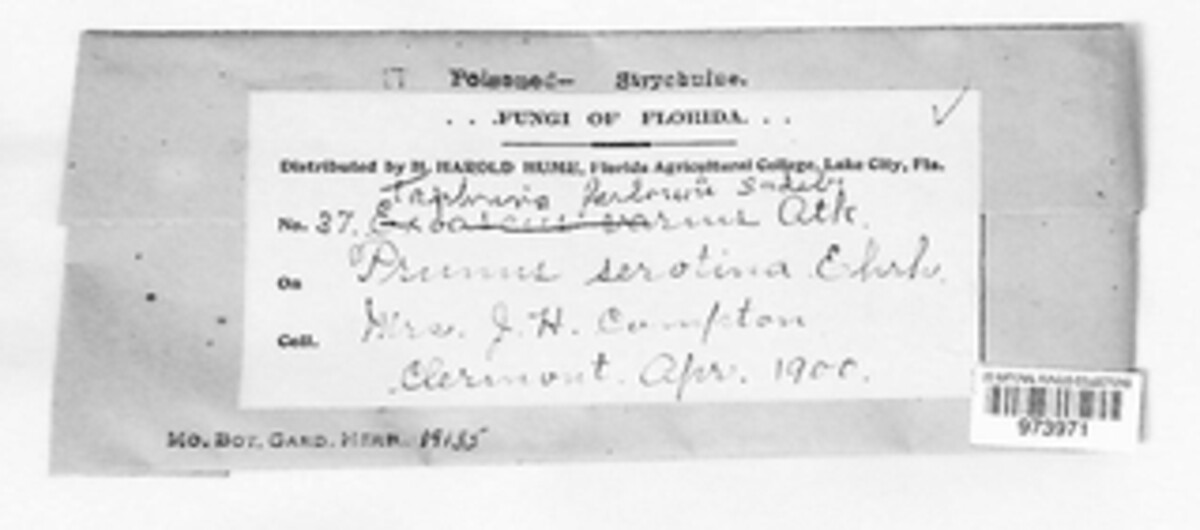 Poisoned— Strychnine.
. . .FUNGI OF FLORIDA. . .
Distributed by H. HAROLD HUME, Florida Agricultural College, Lake City, Fla.
Taphrina farlowii Sadeb.
No. 37. Exoascus varius Atk.
On Prunus serotina Ehrh.
Coll. Mrs. J. H. Compton
Clermont. Apr. 1900.
US NATIONAL FUNGUS COLLECTIONS
973971
MO. BOT. GARD. HERB.